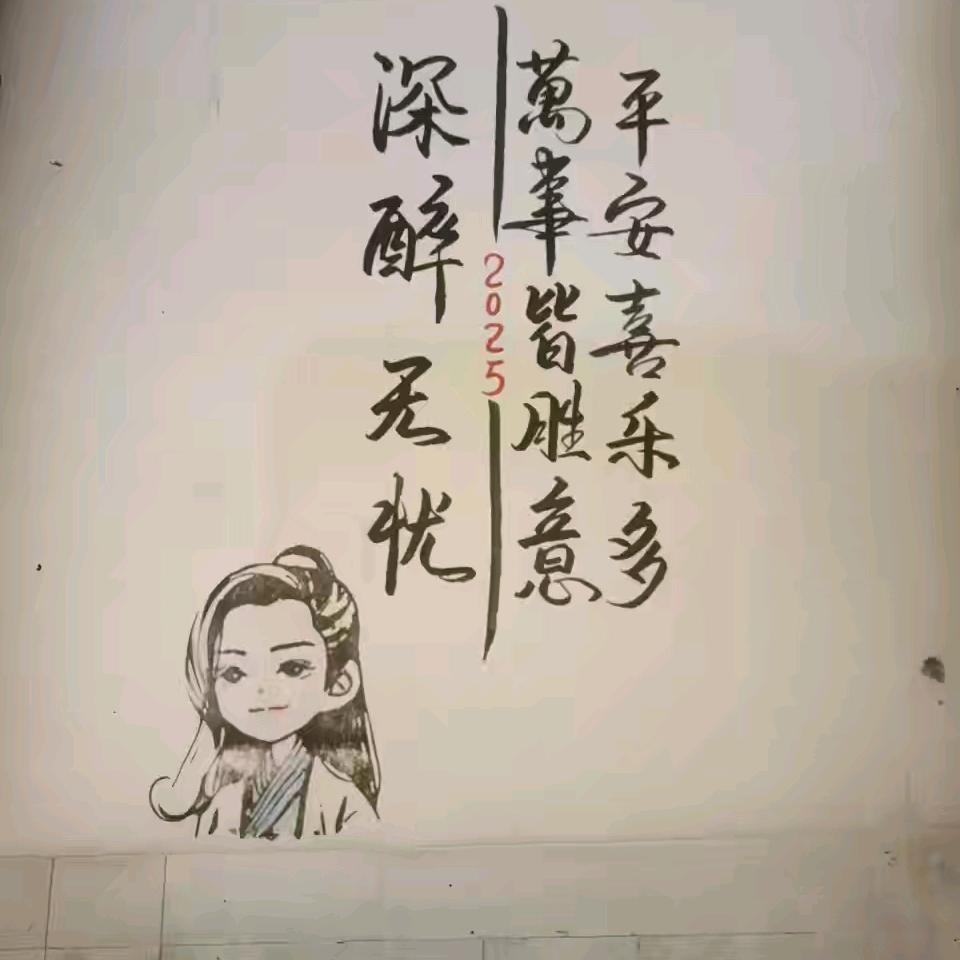 平安喜乐多
萬事皆胜意
2025
深醉无忧